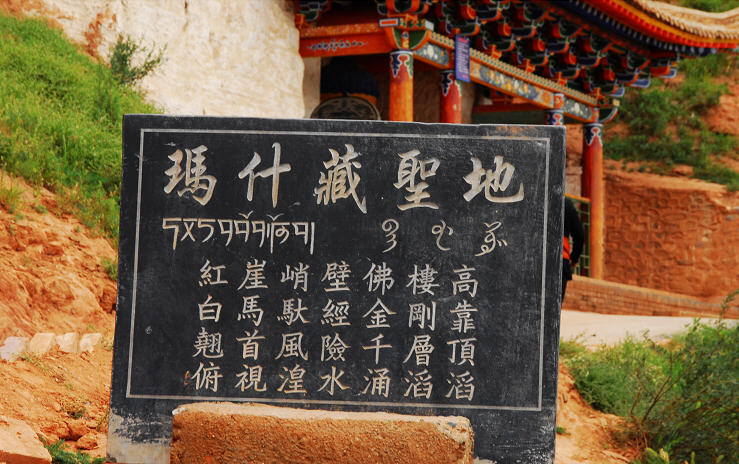 瑪什藏聖地
紅崖峭壁佛樓高
白馬馱經金剛靠
翹首風險千層頂
俯視湟水涌滔滔